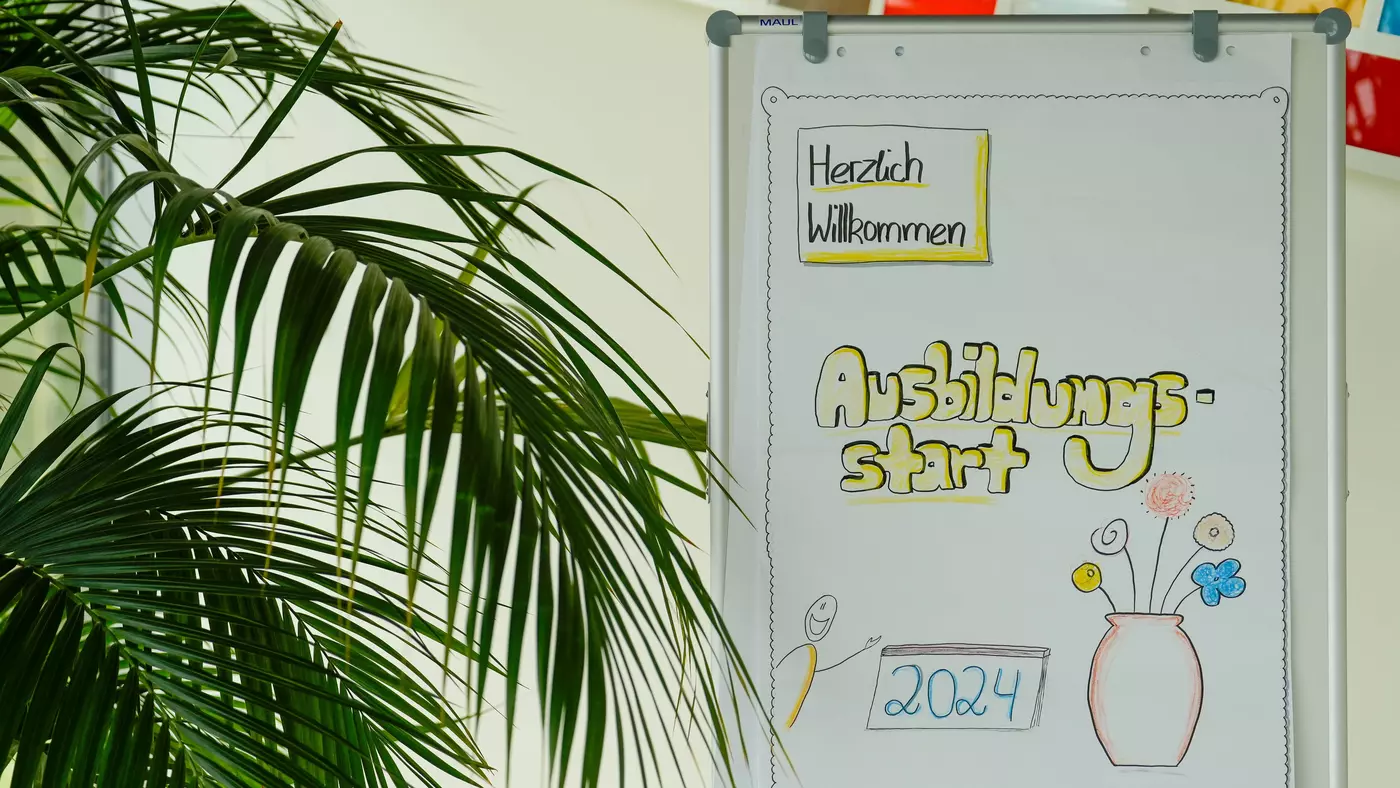 MAUL
Herzlich
Willkommen
Ausbildungs-
start
2024